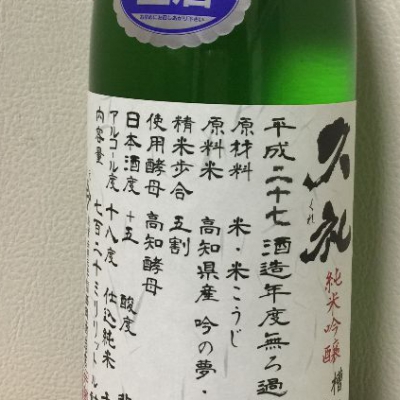 生酒
お早めにお召しあがり下さい
久礼
くれ
純米吟醸 槽
平成二十七酒造年度無ろ過
原材料 米・米こうじ
原料米 高知県産 吟の夢・
精米歩合 五割
使用酵母 高知酵母
日本酒度 +五 酸度
アルコール度 十八度 仕込純米
内容量 七百二十ミリリットル